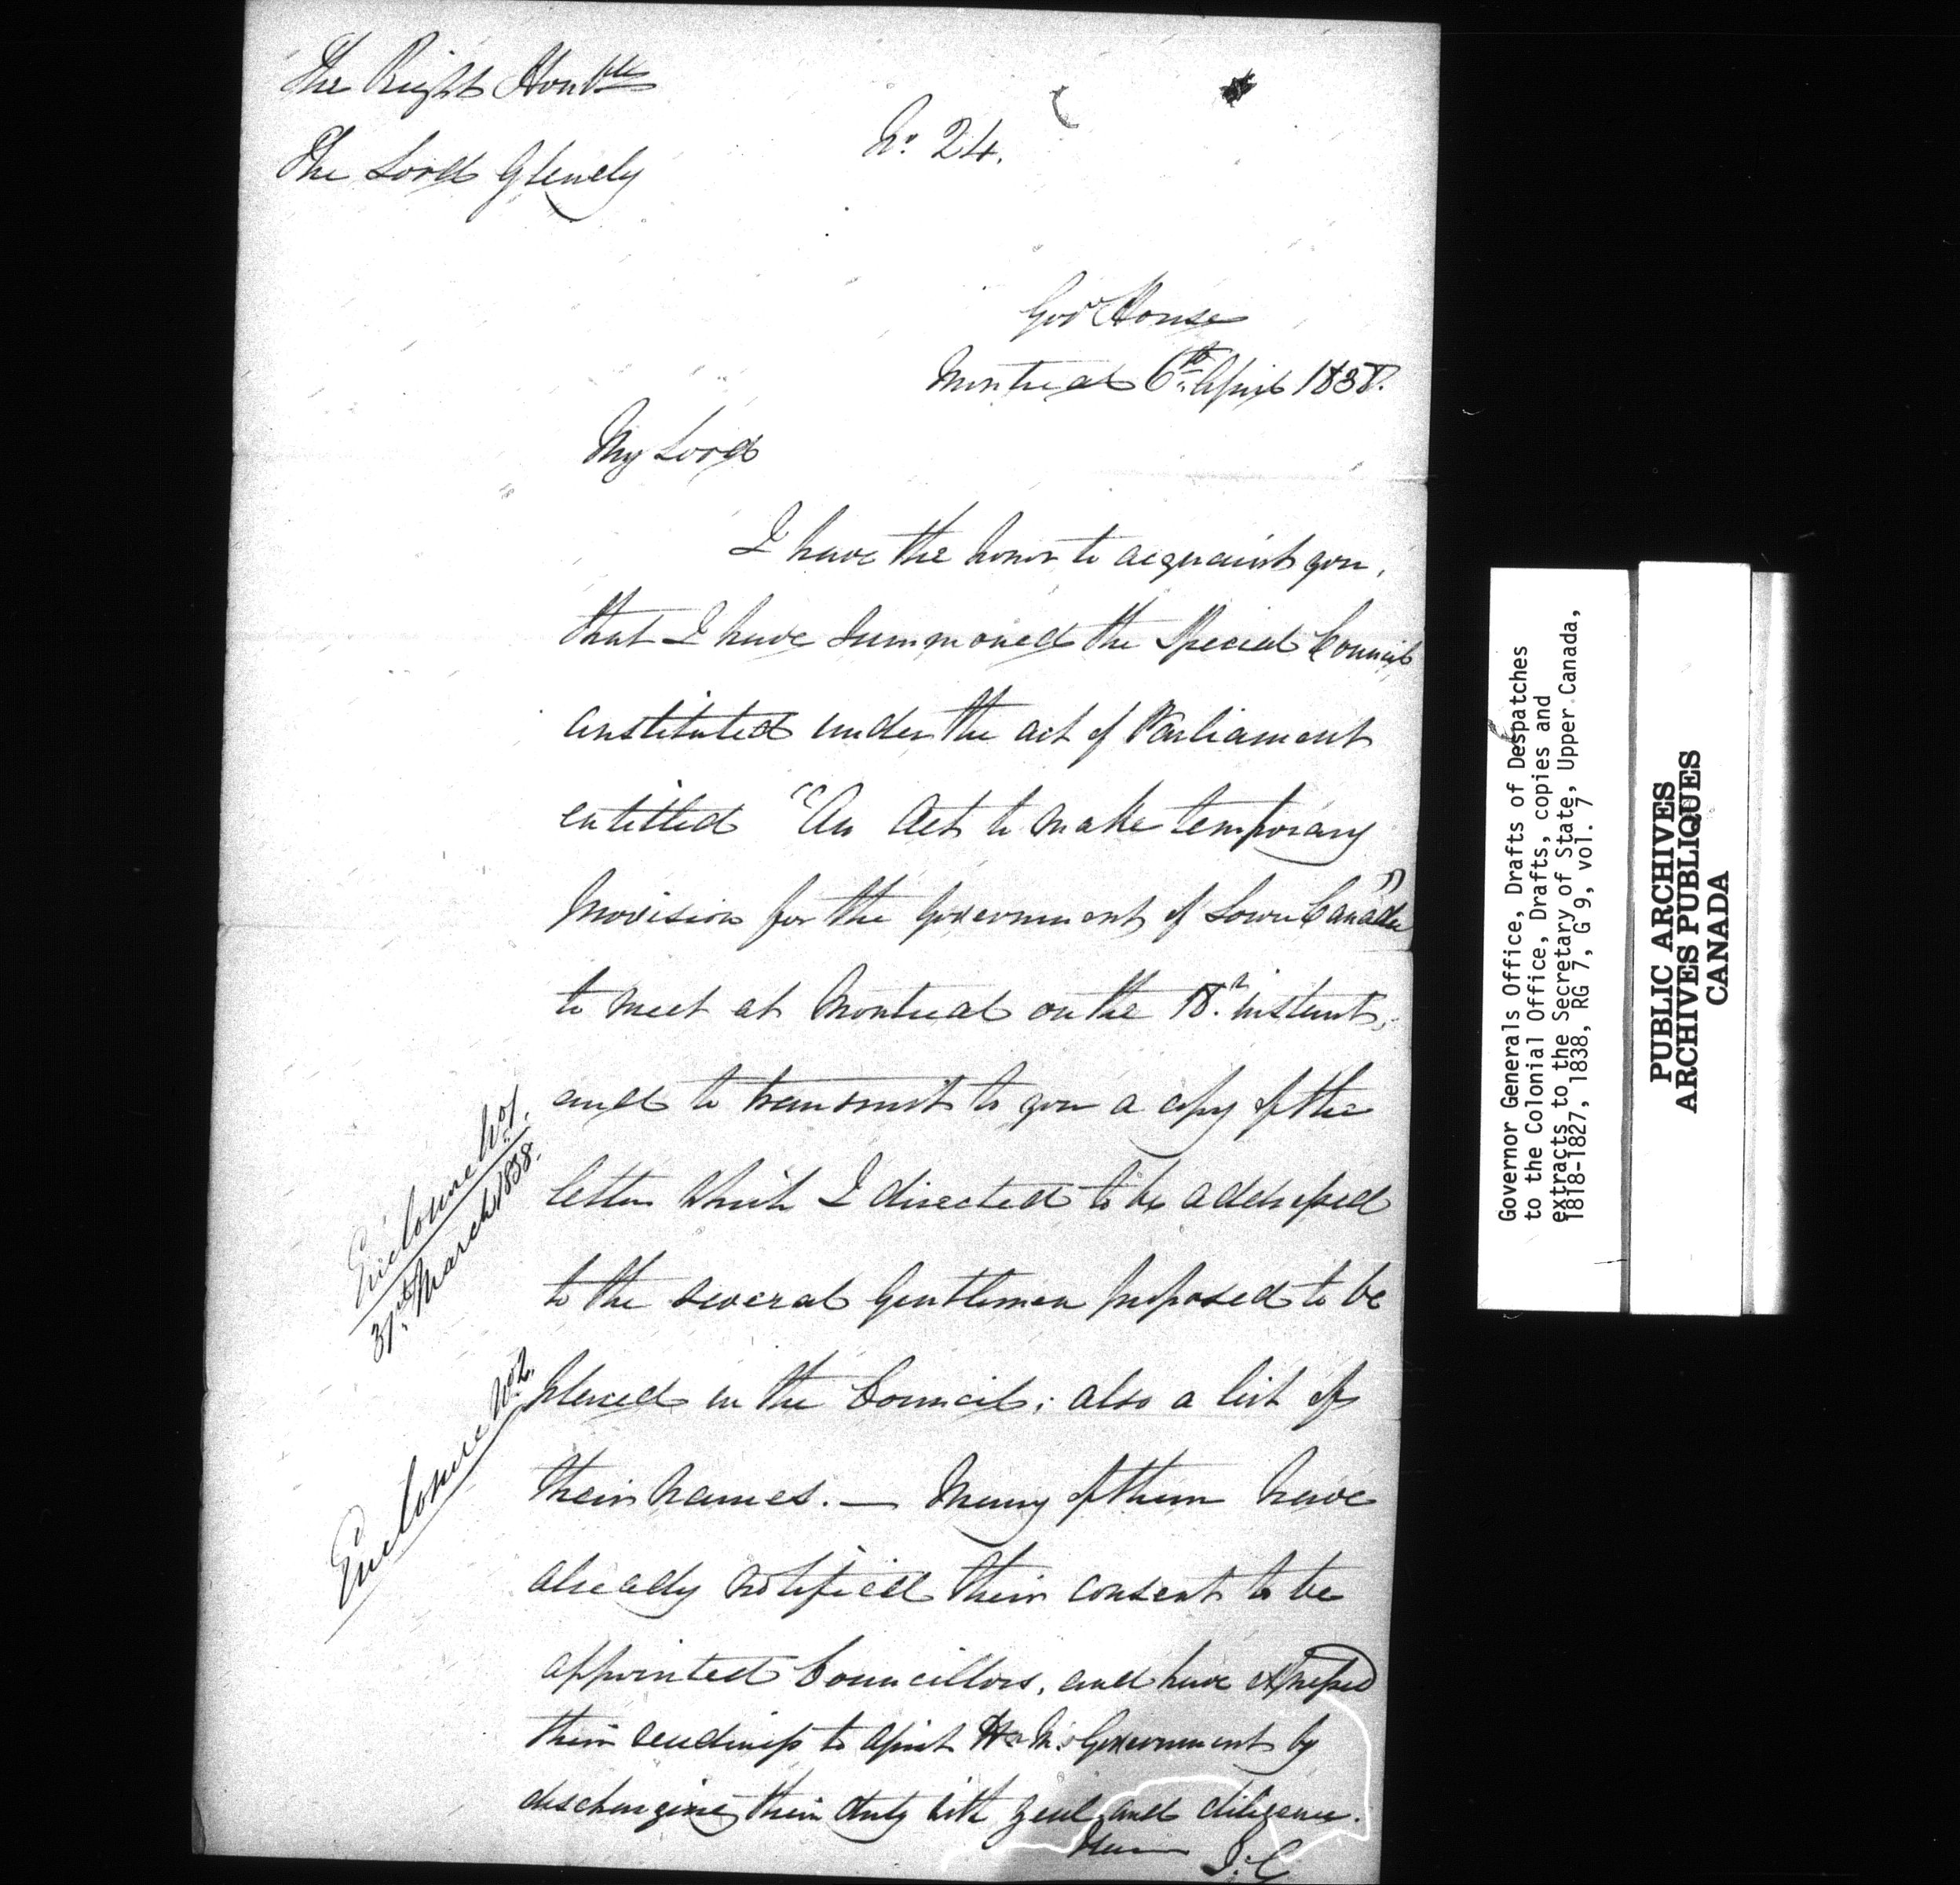 The Right Honble
The Lord Glenelg
No. 24.
Govt House
Montreal 6th April 1838.
My Lord
I have the honor to acquaint you,
that I have summoned the Special Council
constituted under the act of Parliament
entitled "An Act to make temporary
provision for the Government of Lower Canada"
to meet at Montreal on the 18th instant,
and to transmit to you a copy of the
letter which I directed to be addressed
to the several Gentlemen proposed to be
placed in the Council; also a list of
their names. — Many of them have
already notified their consent to be
appointed Councillors, and have expressed
their readiness to assist H. M. Government by
discharging their duty with zeal and diligence.
J. C
Enclosure No 1.
31st March 1838.
Enclosure No 2.
Governor Generals Office, Drafts of Despatches
to the Colonial Office, Drafts, copies and
extracts to the Secretary of State, Upper Canada,
1818-1827, 1838, RG 7, G 9, vol. 7
PUBLIC ARCHIVES
ARCHIVES PUBLIQUES
CANADA